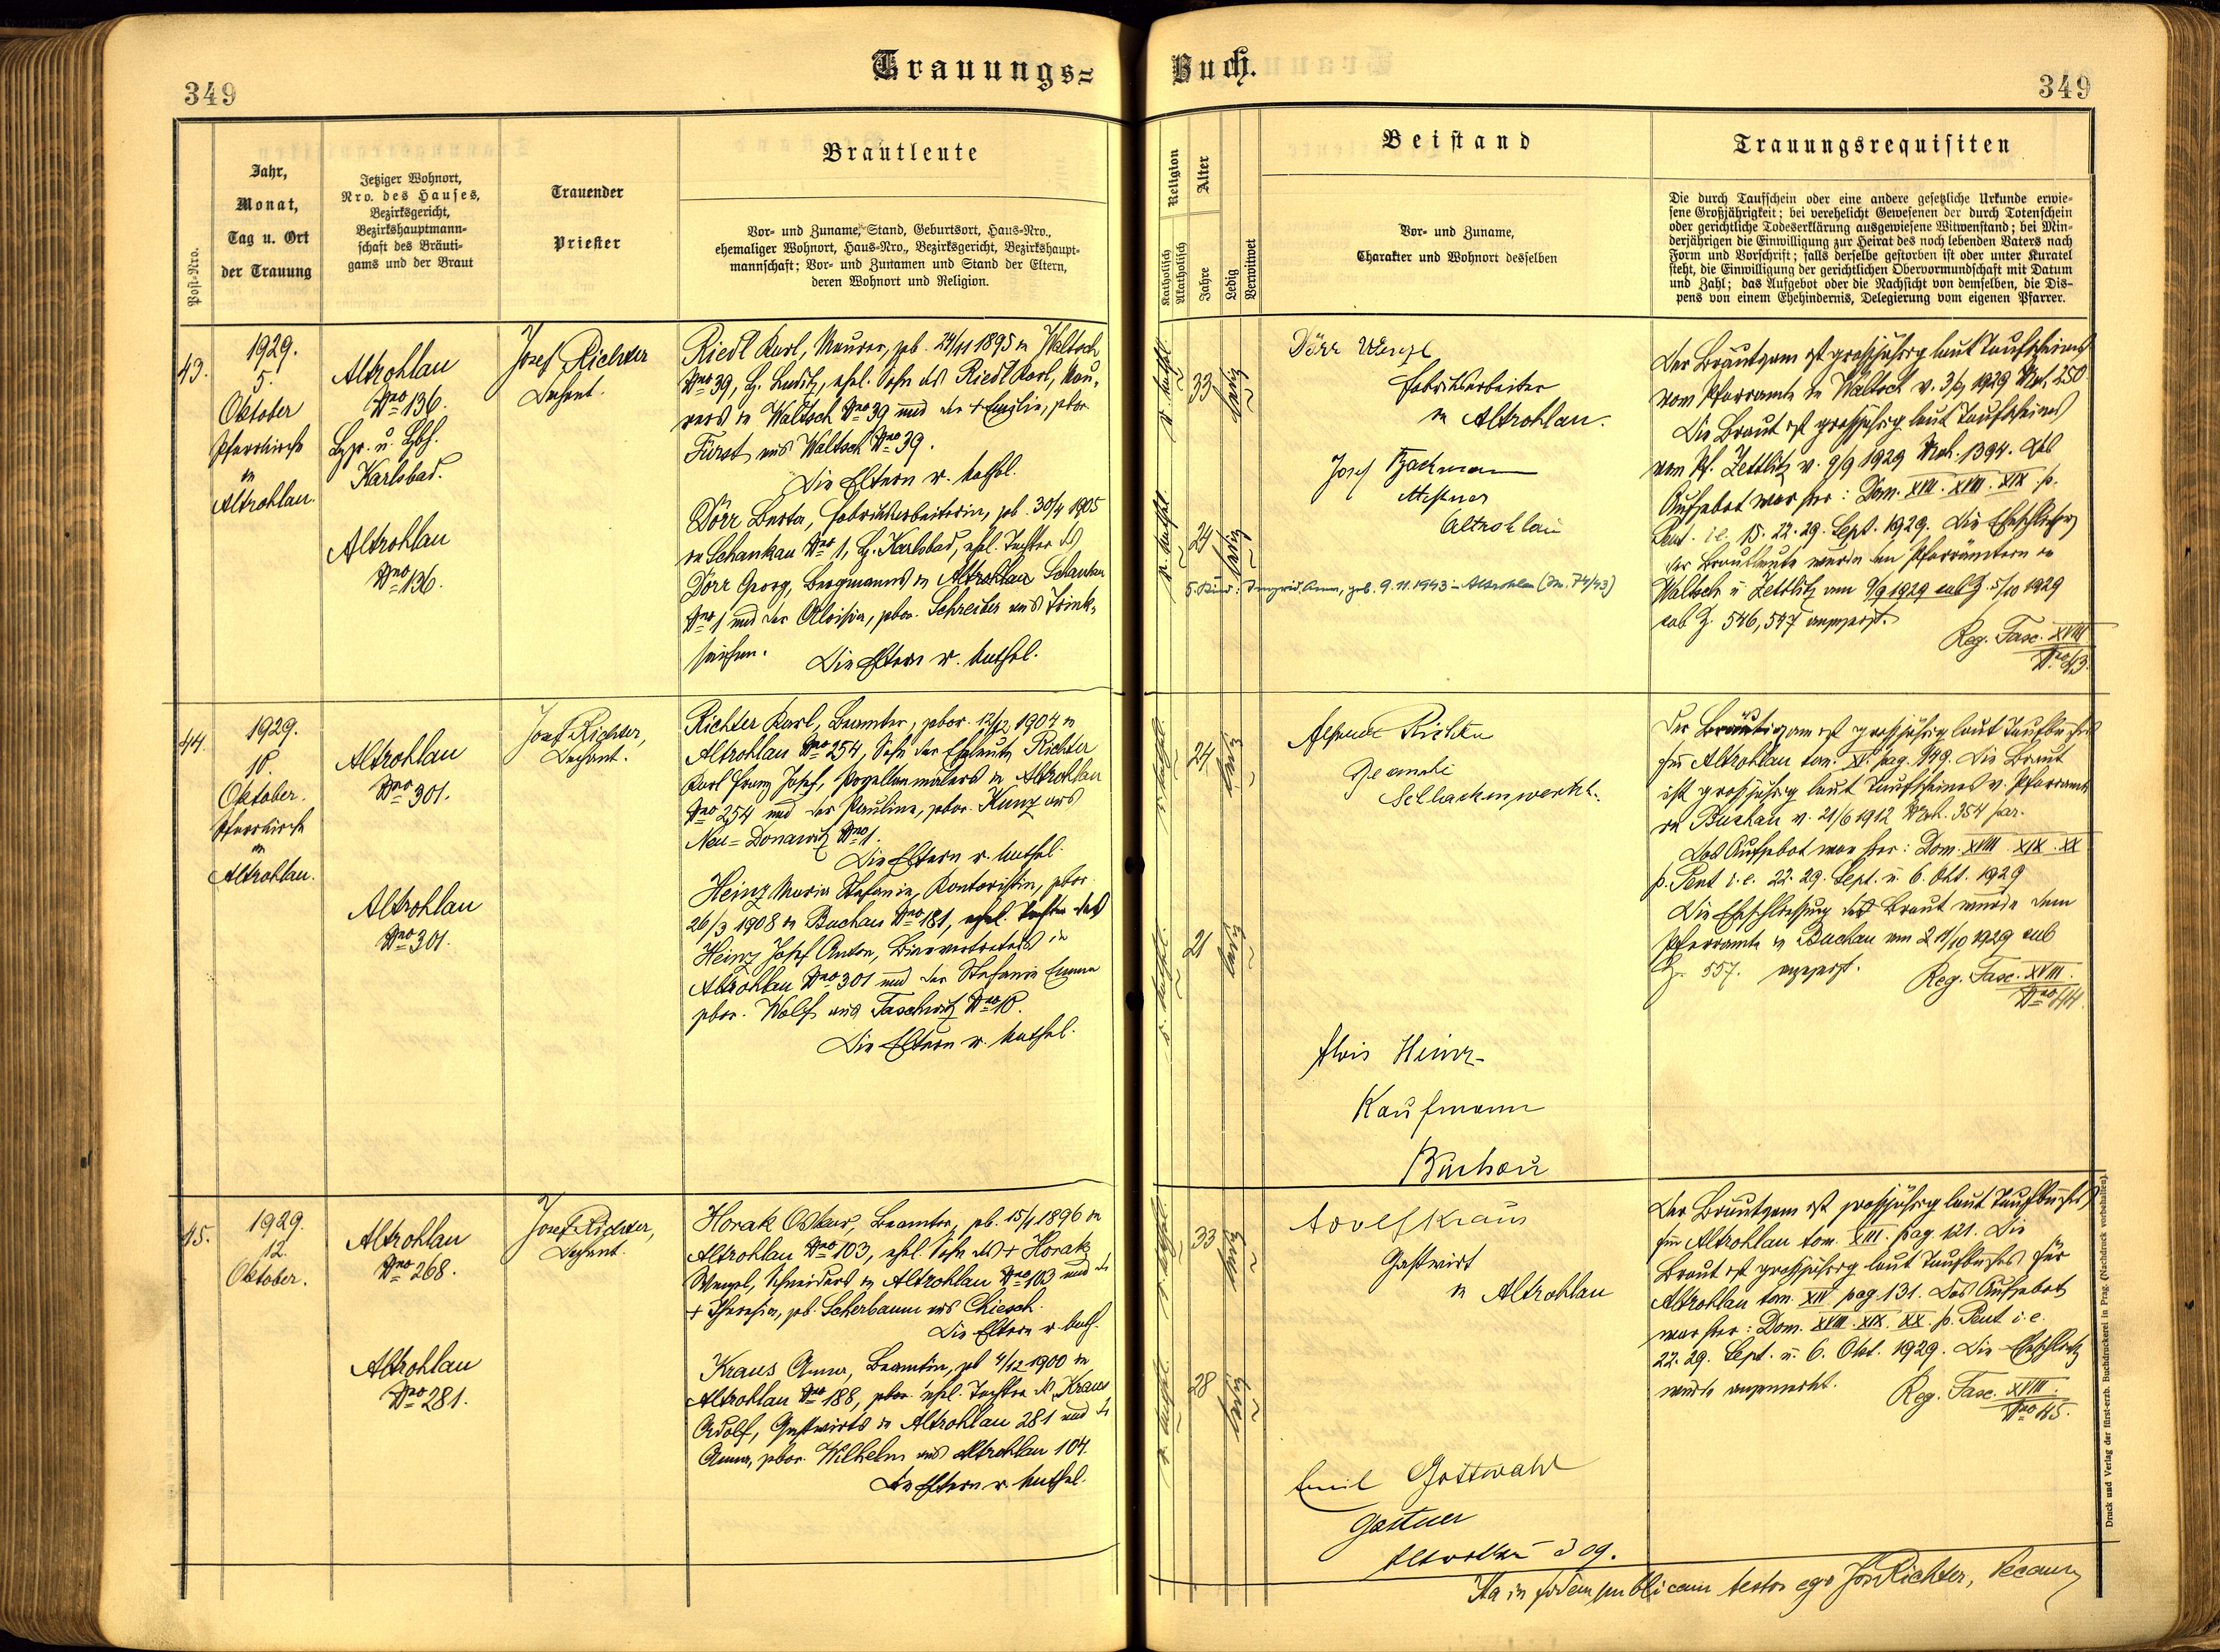 Trauungs=
Buch.
349
349
Post-Nro.
Jahr,
Monat,
Tag u. Ort
der Trauung
Jetziger Wohnort,
Nro. des Hauses,
Bezirksgericht,
Bezirkshauptmann-
schaft des Bräuti-
gams und der Braut
Trauender
Priester
Brautleute
Vor- und Zuname, Stand, Geburtsort, Haus-Nro.,
ehemaliger Wohnort, Haus-Nro., Bezirksgericht, Bezirkshaupt-
mannschaft; Vor- und Zunamen und Stand der Eltern,
deren Wohnort und Religion.
Religion
Katholisch
Akatholisch
Alter
Jahre
Ledig
Verwitwet
Beistand
Vor- und Zuname,
Charakter und Wohnort desselben
Trauungsrequisiten
Die durch Taufschein oder eine andere gesetzliche Urkunde erwie-
sene Großjährigkeit; bei verehelicht Gewesenen der durch Totenschein
oder gerichtliche Todeserklärung ausgewiesene Witwenstand; bei Min-
derjährigen die Einwilligung zur Heirat des noch lebenden Vaters nach
Form und Vorschrift; falls derselbe gestorben ist oder unter Kuratel
steht, die Einwilligung der gerichtlichen Obervormundschaft mit Datum
und Zahl; das Aufgebot oder die Nachsicht von demselben, die Dis-
pens von einem Ehehindernis, Delegierung vom eigenen Pfarrer.
43.
1929.
5.
Oktober
Pfarrkirche
in
Altrohlau.
Altrohlau
Nro 136.
Bzg. u. Bzh.
Karlsbad.
Altrohlau
Nro 136.
Josef Richter
Dechant.
Riedl Karl, Maurer, geb. 24/11 1895 in Waltsch
Nro 39, B. Luditz, ehel. Sohn des Riedl Karl, Mau-
rers in Waltsch Nro 39 und der + Emilie, gebor.
Fürst aus Waltsch Nro 39.
Die Eltern r. kathol.
Dörr Berta, Fabriksarbeiterin, geb. 30/4 1905
in Schankau Nro 1, B. Karlsbad, ehel. Tochter des
Dörr Georg, Bergmanns in Altrohlau Schankau
Nro 1 und der Aloisia, gebor. Schreiber aus Trink-
seifen. Die Eltern r. kathol.
r. kathol.
33
ledig
r. kathol.
24
ledig
Dörr Wenzl
Fabriksarbeiter
in Altrohlau.
Josef Bachmann
Mesner
Altrohlau
5. Kind: Ingrid Anna, geb. 9.11.1943 - Altrohlau (Nr. 74/43)
Der Bräutigam ist großjährig laut Taufscheines
vom Pfarramte in Waltsch v. 3/9 1929 Mat. 250.
Die Braut ist großjährig laut Taufscheines
vom Pf. Zettlitz v. 9/9 1929 Mat. 1394. Das
Aufgebot war hier: Dom. XVII. XVIII. XIX. p.
Pent. i.e. 15. 22. 29. Sept. 1929. Die Eheschließung
der Brautleute wurde den Pfarrämtern in
Waltsch u. Zettlitz am 9/9 1929 sub Z. 5/10 1929
sub Z. 546, 547 angezeigt.
Reg. Fasc. XVIII
Nro 43.
44.
1929.
10.
Oktober.
Pfarrkirche
in
Altrohlau.
Altrohlau
Nro 301.
Altrohlau
Nro 301.
Josef Richter,
Dechant.
Richter Karl, Beamter, gebor. 12/12 1904 in
Altrohlau Nro 254, Sohn der Eheleute Richter
Karl Franz Josef, Porzellanmalers in Altrohlau
Nro 254 und der Pauline, gebor. Kunz aus
Neu-Donawitz Nro 1.
Die Eltern r. kathol.
Heinz Maria Stefanie, Kontoristin, gebor.
26/3 1908 in Buchau Nro 181, ehel. Tochter des
Heinz Josef Anton, Biervertreters in
Altrohlau Nro 301 und der Stefanie Emma
gebor. Wolf aus Taschwitz Nro 10.
Die Eltern r. kathol.
r. kathol.
24
ledig
r. kathol.
21
ledig
Schlackenwerth.
Alois Heinz
Kaufmann
Buchau
Der Bräutigam ist großjährig laut Taufbuches
für Altrohlau tom. XV. pag. 149. Die Braut
ist großjährig laut Taufscheines v. Pfarramte
in Buchau v. 21/6 1912 Mat. 354 par.
Das Aufgebot war hier: Dom. XVIII. XIX. XX
p. Pent i.e. 22. 29. Sept. u. 6. Okt. 1929
Die Eheschließung der Braut wurde dem
Pfarramte in Buchau am 11/10 1929 sub
Z. 557. angezeigt.
Reg. Fasc. XVIII.
Nro 44.
45.
1929.
12.
Oktober.
Altrohlau
Nro 268.
Altrohlau
Nro 281.
Josef Richter,
Dechant.
Horak Oskar, Beamter, geb. 15/1 1896 in
Altrohlau Nro 103, ehel. Sohn des + Horak
Wenzel, Schneiders in Altrohlau Nro 103 und der
+ Theresia, geb. Scherbaum aus Chiesch.
Die Eltern r. kath.
Kraus Anna, Beamtin, geb 4/12 1900 in
Altrohlau Nro 188, gebor. ehel. Tochter des Kraus
Adolf, Gastwirts in Altrohlau 281 und der
Anna, gebor. Wilhelm aus Altrohlau 104.
Die Eltern r. kathol.
r. kathol.
33
ledig
r. kathol.
28
ledig
Adolf Kraus
Gastwirt
in Altrohlau
Emil Gottwald
Gärtner
Altrohlau 309.
Der Bräutigam ist großjährig laut Taufbuches
für Altrohlau tom. XIII. pag. 121. Die
Braut ist großjährig laut Taufbuches für
Altrohlau tom. XIV pag. 131. Das Aufgebot
war hier: Dom. XVIII. XIX. XX. p. Pent i.e.
22. 29. Sept. u. 6. Okt. 1929. Die Eheschließg
wurde angemerkt.
Reg. Fasc. XVIII.
Nro 45.
Ita in fidem publicam testor ego Jos Richter, Decanus
Druck und Verlag der fürst-erzb. Buchdruckerei in Prag. (Nachdruck vorbehalten).